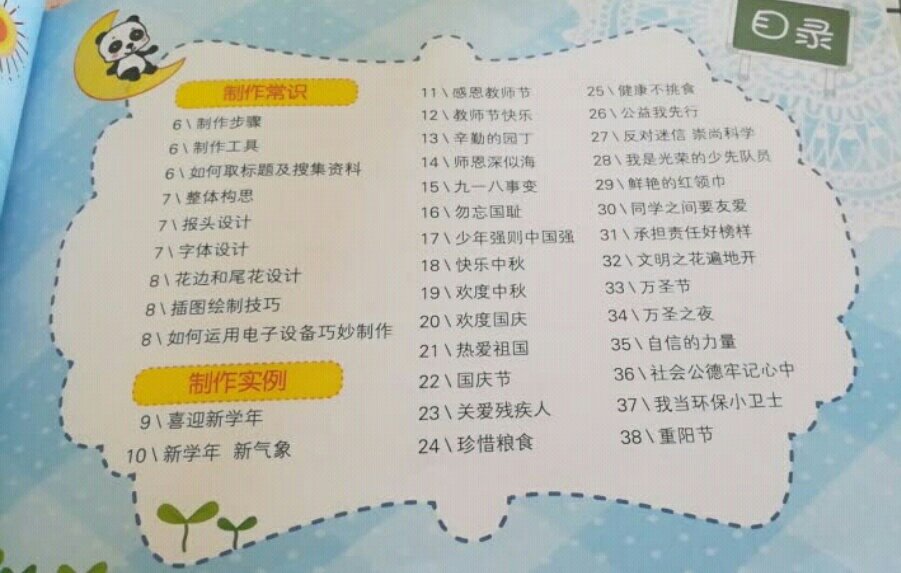 目录
制作常识
6\制作步骤
6\制作工具
6\如何取标题及搜集资料
7\整体构思
7\报头设计
7\字体设计
8\花边和尾花设计
8\插图绘制技巧
8\如何运用电子设备巧妙制作
制作实例
9\喜迎新学年
10\新学年 新气象
11\感恩教师节
12\教师节快乐
13\辛勤的园丁
14\师恩深似海
15\九一八事变
16\勿忘国耻
17\少年强则中国强
18\快乐中秋
19\欢度中秋
20\欢度国庆
21\热爱祖国
22\国庆节
23\关爱残疾人
24\珍惜粮食
25\健康不挑食
26\公益我先行
27\反对迷信 崇尚科学
28\我是光荣的少先队员
29\鲜艳的红领巾
30\同学之间要友爱
31\承担责任好榜样
32\文明之花遍地开
33\万圣节
34\万圣之夜
35\自信的力量
36\社会公德牢记心中
37\我当环保小卫士
38\重阳节